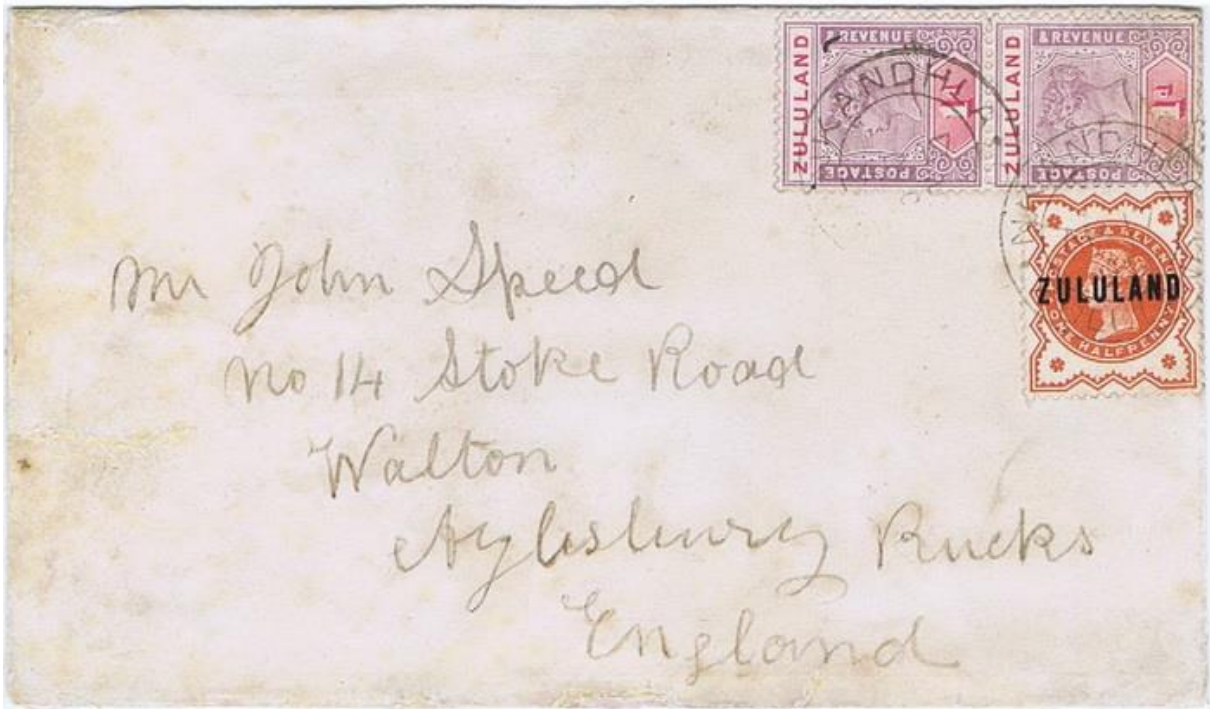 ZULULAND POSTAGE & REVENUE 1D
ZULULAND POSTAGE & REVENUE 1D
NKANDHLA
NDH
POSTAGE & REVENUE
ZULULAND
ONE HALFPENNY
Mr John Speed
No 14 Stoke Road
Walton
Aylesbury Bucks
England